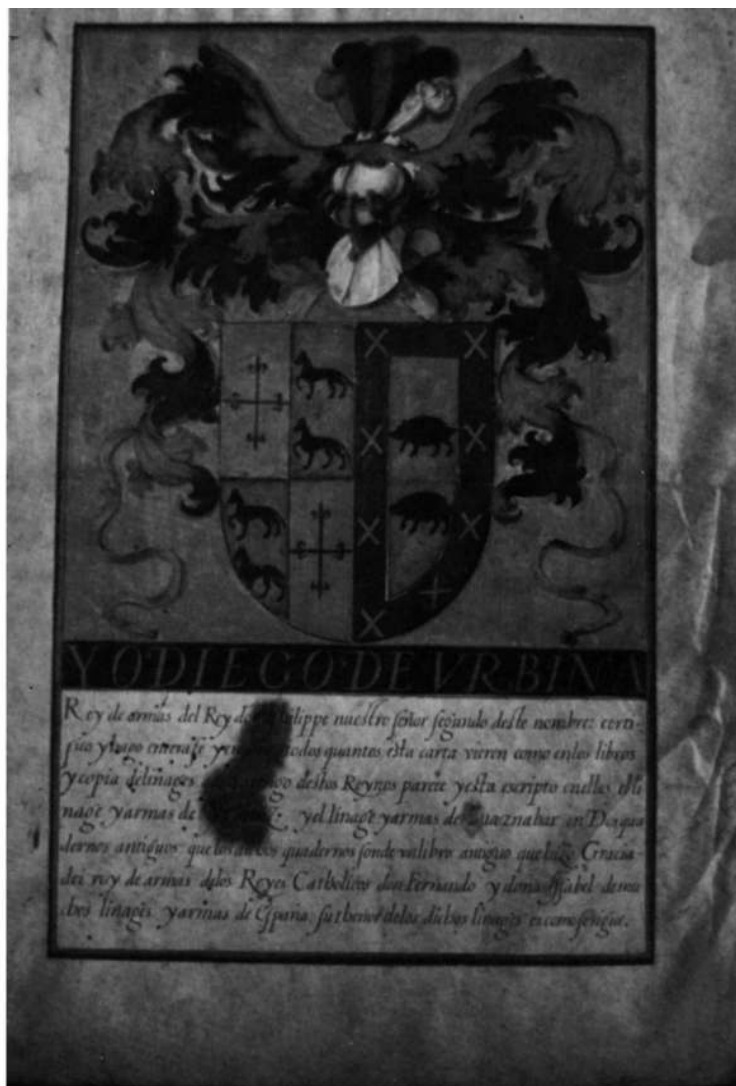 YO·DIEGO·DE VRBINA
Rey de armas del Rey don felippe nuestro señor segundo deste nombre: certi-
fico y hago entera fe y a todos quantos esta carta vieren como en los libros
y copia de linages destos Reynos parece y esta escripto en elles el li
nage y armas de y el linage y armas de en Dos qua
dernos antiguos que los dichos quadernos son de un libro antiguo que hizo Gracia-
dei rey de armas delos Reyes Catholicos don Fernando y doña Issabel de mu
chos linages y armas de España su thenor delos dichos linages es como se sigue.